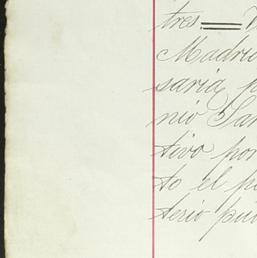 tres.=
Madrid
saria, p
nio San
tivo por
to el p
terio pú